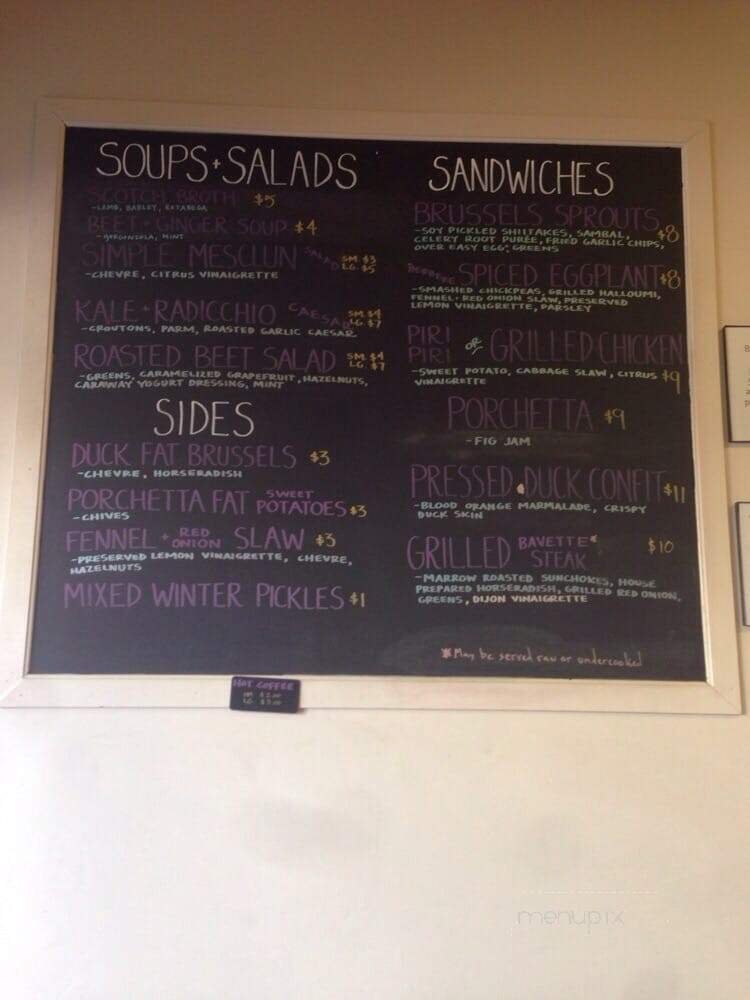 SOUPS + SALADS
SCOTCH BROTH $5
- LAMB, BARLEY, RUTABAGA
GINGER SOUP $4
- GORGONZOLA, MINT
SIMPLE MESCLUN SALAD SM. $3 LG. $5
- CHEVRE, CITRUS VINAIGRETTE
KALE + RADICCHIO CAESAR SM. $4 LG. $7
- CROUTONS, PARM, ROASTED GARLIC CAESAR
ROASTED BEET SALAD SM. $4 LG. $7
- GREENS, CARAMELIZED GRAPEFRUIT, HAZELNUTS,
CARAWAY YOGURT DRESSING, MINT
SIDES
DUCK FAT BRUSSELS $3
- CHEVRE, HORSERADISH
PORCHETTA FAT SWEET POTATOES $3
- CHIVES
FENNEL + RED ONION SLAW $3
- PRESERVED LEMON VINAIGRETTE, CHEVRE,
HAZELNUTS
MIXED WINTER PICKLES $1
SANDWICHES
BRUSSELS SPROUTS $8
- SOY PICKLED SHIITAKES, SAMBAL,
CELERY ROOT PURÉE, FRIED GARLIC CHIPS,
OVER EASY EGG*, GREENS
BERBERE SPICED EGGPLANT $8
- SMASHED CHICKPEAS, GRILLED HALLOUMI,
FENNEL + RED ONION SLAW, PRESERVED
LEMON VINAIGRETTE, PARSLEY
PIRI PIRI GRILLED CHICKEN $9
- SWEET POTATO, CABBAGE SLAW, CITRUS
VINAIGRETTE
PORCHETTA $9
- FIG JAM
PRESSED DUCK CONFIT $11
- BLOOD ORANGE MARMALADE, CRISPY
DUCK SKIN
GRILLED BAVETTE* STEAK $10
- MARROW ROASTED SUNCHOKES, HOUSE
PREPARED HORSERADISH, GRILLED RED ONION,
GREENS, DIJON VINAIGRETTE
* May be served raw or undercooked
HOT COFFEE
menupix